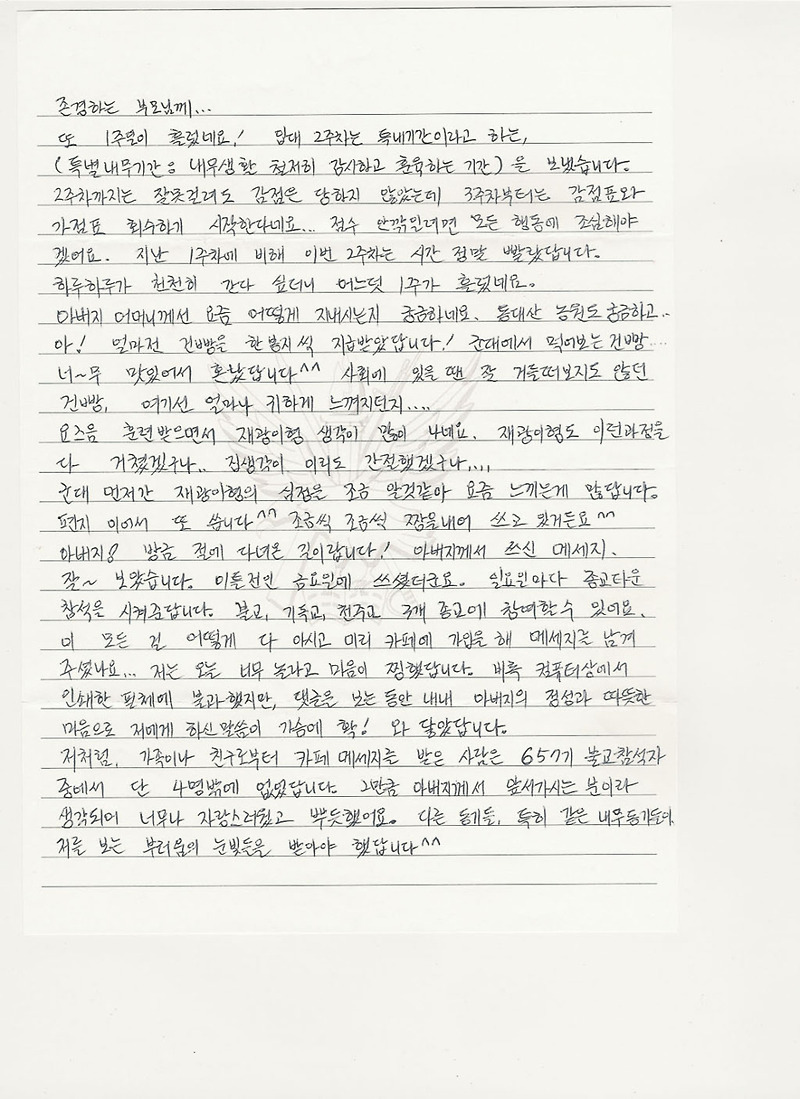 존경하는 부모님께...
또 1주일이 흘렀네요! 입대 2주차는 특내기간이라고 하는,
(특별내무기간: 내무생활 철저히 감시하고 훈육하는 기간)을 보냈습니다.
2주차까지는 잘못걸려도 감점은 당하지 않았는데 3주차부터는 감점표와
가점표 회수하기 시작한다네요... 점수 안깎일려면 모든 행동에 조심해야
겠어요. 지난 1주차에 비해 이번 2주차는 시간 정말 빨랐답니다.
하루하루가 천천히 간다 싶더니 어느덧 1주가 흘렀네요.
아버지 어머니께선 요즘 어떻게 지내시는지 궁금하네요. 농원도 궁금하고..
아! 얼마전 건빵을 한봉지씩 지급받았답니다! 군대에서 먹어보는 건빵....
너~무 맛있어서 혼났답니다^^ 사회에 있을 땐 잘 거들떠보지도 않던
건빵, 여기선 얼마나 귀하게 느껴지던지....
요즈음 훈련받으면서 재광이형 생각이 많이 나네요. 재광이형도 이런과정을
다 거쳤겠구나.. 집생각이 이리도 간절했겠구나....
군대 먼저간 재광이형의 심정은 조금 알것같아 요즘 느끼는게 많답니다.
편지 이어서 또 씁니다^^ 조금씩 조금씩 짬을내어 쓰고 있거든요^^
아버지! 방금 절에 다녀온 길이랍니다! 아버지께서 쓰신 메세지.
잘~ 보았습니다. 이틀전인 금요일에 쓰셨더군요. 일요일마다 종교타운
참석을 시켜준답니다. 불교, 기독교, 천주교 3개 종교에 참여할수 있어요.
이 모든 걸 어떻게 다 아시고 미리 카페에 가입을 해 메세지를 남겨
주셨나요... 저는 오늘 너무 놀라고 마음이 찡했답니다. 비록 컴퓨터상에서
인쇄한 필체에 불과했지만, 댓글을 보는 동안 내내 아버지의 정성과 따뜻한
마음으로 저에게 하신 말씀이 가슴에 확! 와 닿았답니다.
저처럼, 가족이나 친구로부터 카페 메세지를 받은 사람은 657기 불교참석자
중에서 단 4명밖에 없었답니다. 그만큼 아버지께서 앞서가시는 분이라
생각되어 너무나 자랑스러웠고 뿌듯했어요. 다른 동기들, 특히 같은 내무동기들이
저를 보는 부러움의 눈빛들을 받아야 했답니다^^